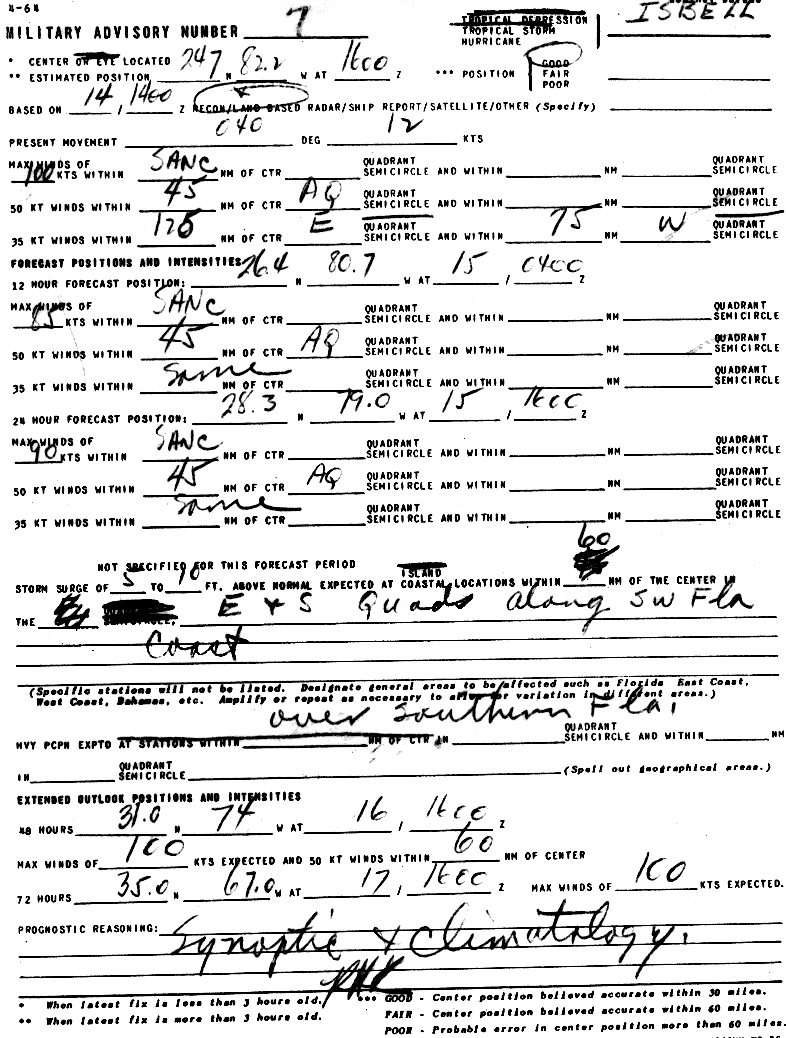 4-64
MILITARY ADVISORY NUMBER 7 TROPICAL DEPRESSION ISBELL
TROPICAL STORM
HURRICANE
* CENTER OR EYE LOCATED 247 82.2 1600 GOOD
** ESTIMATED POSITION N W AT Z *** POSITION FAIR
POOR
BASED ON 14 / 1400 Z RECON/LAND BASED RADAR/SHIP REPORT/SATELLITE/OTHER (Specify)
PRESENT MOVEMENT 040 DEG 12 KTS
MAX WINDS OF QUADRANT QUADRANT
100 KTS WITHIN SANC NM OF CTR SEMICIRCLE AND WITHIN NM SEMICIRCLE
QUADRANT QUADRANT
50 KT WINDS WITHIN 45 NM OF CTR AQ SEMICIRCLE AND WITHIN NM SEMICIRCLE
QUADRANT QUADRANT
35 KT WINDS WITHIN 125 NM OF CTR E SEMICIRCLE AND WITHIN 75 NM W SEMICIRCLE
FORECAST POSITIONS AND INTENSITIES
12 HOUR FORECAST POSITION: 26.4 N 80.7 W AT 15 / 0400 Z
MAX WINDS OF QUADRANT QUADRANT
85 KTS WITHIN SANC NM OF CTR SEMICIRCLE AND WITHIN NM SEMICIRCLE
QUADRANT QUADRANT
50 KT WINDS WITHIN 45 NM OF CTR AQ SEMICIRCLE AND WITHIN NM SEMICIRCLE
QUADRANT QUADRANT
35 KT WINDS WITHIN Same NM OF CTR SEMICIRCLE AND WITHIN NM SEMICIRCLE
24 HOUR FORECAST POSITION: 28.3 N 79.0 W AT 15 / 1600 Z
MAX WINDS OF QUADRANT QUADRANT
90 KTS WITHIN SANC NM OF CTR SEMICIRCLE AND WITHIN NM SEMICIRCLE
QUADRANT QUADRANT
50 KT WINDS WITHIN 45 NM OF CTR AQ SEMICIRCLE AND WITHIN NM SEMICIRCLE
QUADRANT QUADRANT
35 KT WINDS WITHIN Same NM OF CTR SEMICIRCLE AND WITHIN NM SEMICIRCLE
NOT SPECIFIED FOR THIS FORECAST PERIOD ISLAND 60
STORM SURGE OF 5 TO 10 FT. ABOVE NORMAL EXPECTED AT COASTAL LOCATIONS WITHIN NM OF THE CENTER IN
THE E & S Quads along SW Fla
Coast
(Specific stations will not be listed. Designate general areas to be affected such as Florida East Coast,
West Coast, Bahamas, etc. Amplify or repeat as necessary to allow for variation in different areas.)
over Southern Fla.
QUADRANT
HVY PCPN EXPTD AT STATIONS WITHIN NM OF CTR IN SEMICIRCLE AND WITHIN NM
QUADRANT
IN SEMICIRCLE (Spell out geographical areas.)
EXTENDED OUTLOOK POSITIONS AND INTENSITIES
48 HOURS 31.0 N 74 W AT 16 / 1600 Z
MAX WINDS OF 100 KTS EXPECTED AND 50 KT WINDS WITHIN 60 NM OF CENTER
72 HOURS 35.0 N 67.0 W AT 17 / 1600 Z MAX WINDS OF 100 KTS EXPECTED.
PROGNOSTIC REASONING: Synoptic & Climatology.
* When latest fix is less than 3 hours old. *** GOOD - Center position believed accurate within 30 miles.
** When latest fix is more than 3 hours old. FAIR - Center position believed accurate within 60 miles.
POOR - Probable error in center position more than 60 miles.